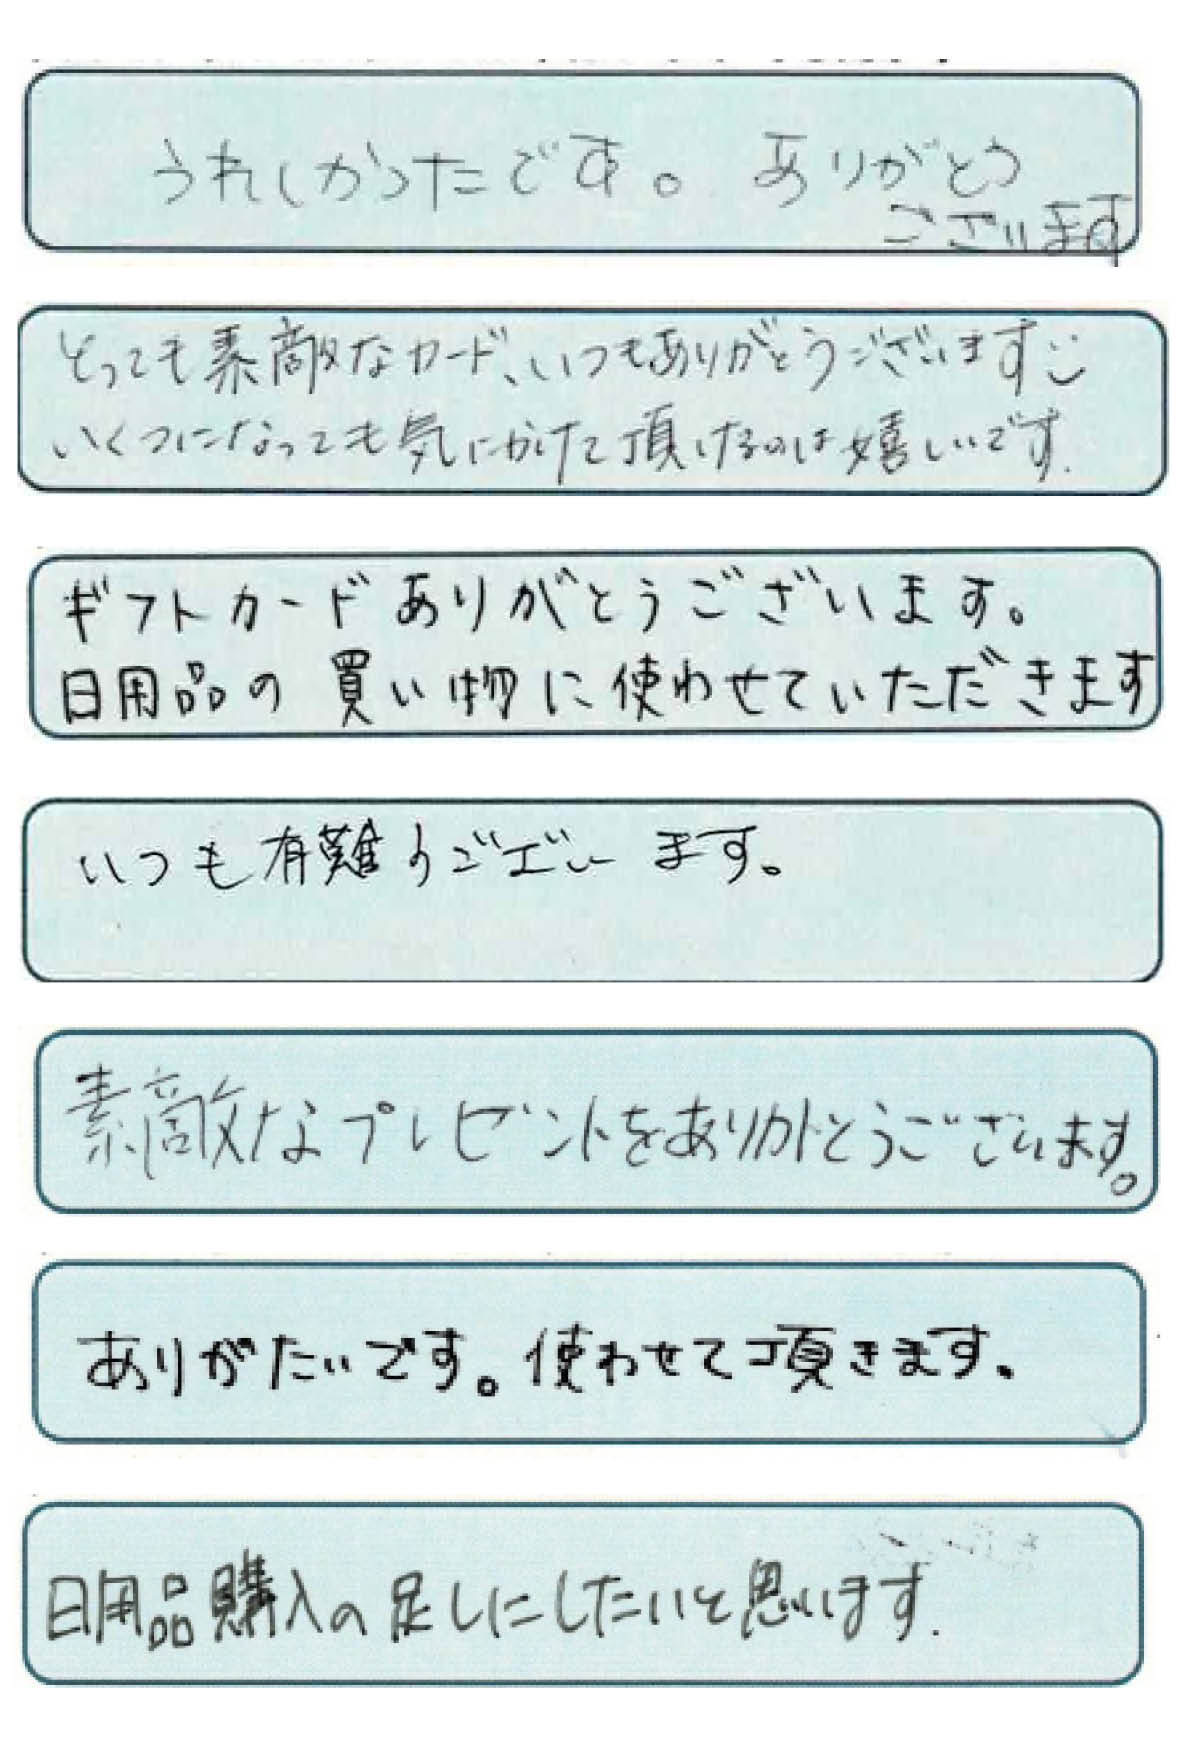 うれしかったです。ありがとう
ございます
とっても素敵なカード、いつもありがとうございます
いくつになっても気にかけて頂けるのは嬉しいです.
ギフトカードありがとうございます。
日用品の買い物に使わせていただきます
いつも有難うございます。
素敵なプレゼントをありがとうございます。
ありがたいです。使わせて頂きます.
日用品購入の足しにしたいと思います.